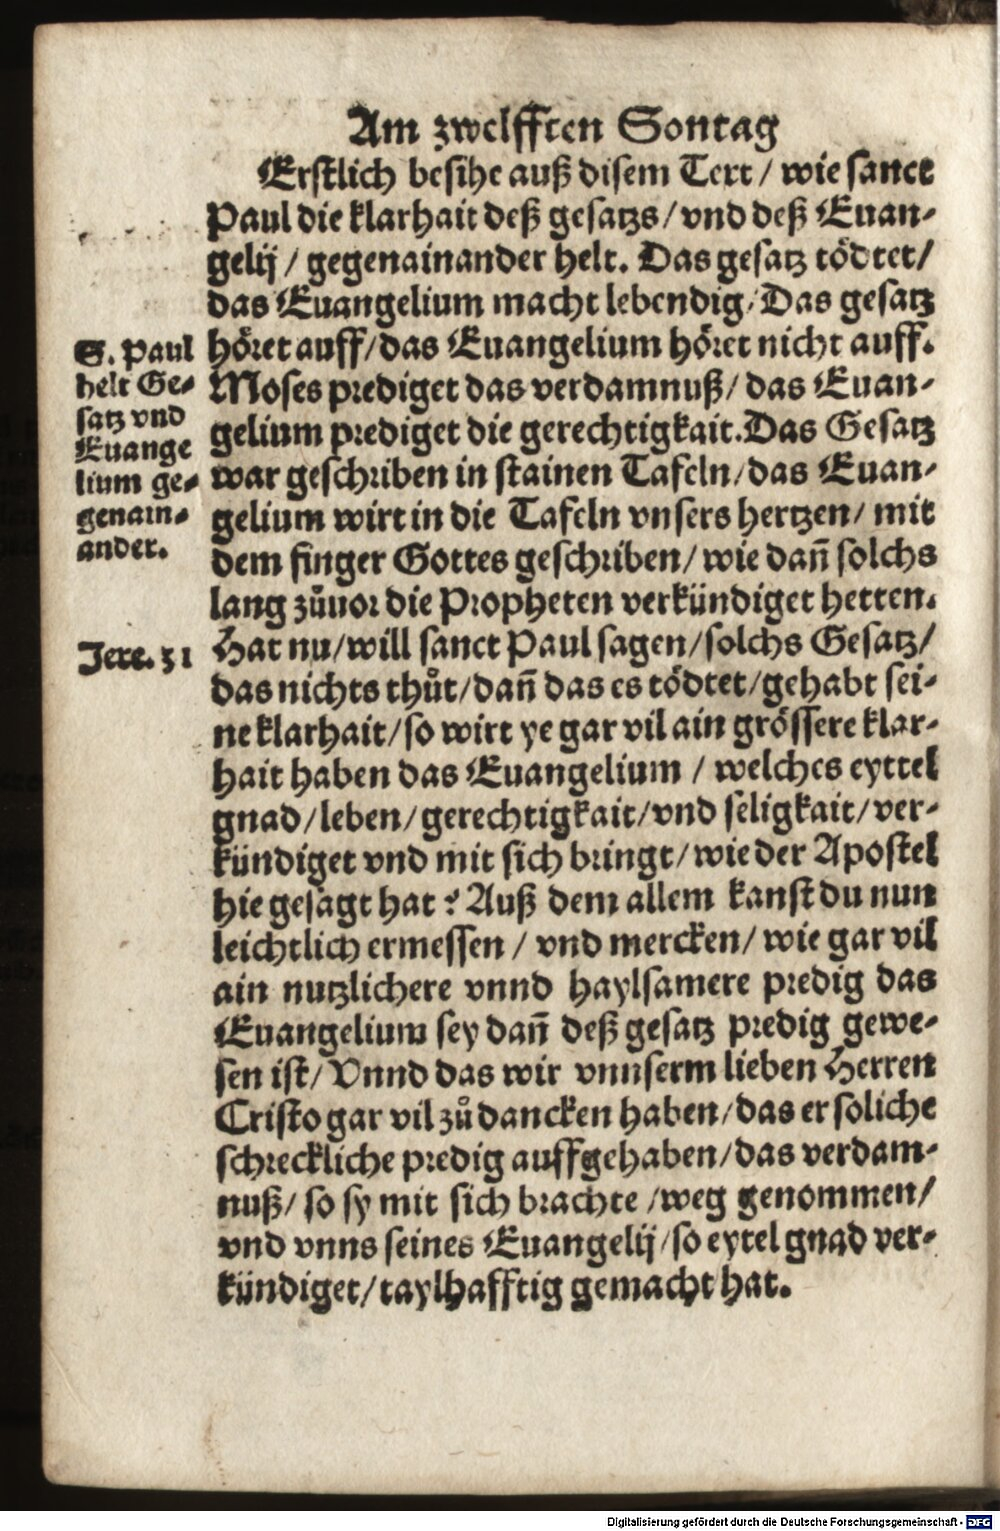 Am zwelfften Sontag
Erstlich besihe auß disem Text / wie sanct
Paul die klarhait deß gesatzs / vnd deß Euan-
gelij / gegenainander helt. Das gesatz tödtet /
das Euangelium macht lebendig / Das gesatz
höret auff / das Euangelium höret nicht auff.
Moses prediget das verdamnuß / das Euan-
gelium prediget die gerechtigkait. Das Gesatz
war geschriben in stainen Tafeln / das Euan-
gelium wirt in die Tafeln vnsers hertzen / mit
dem finger Gottes geschriben / wie dañ solchs
lang zůuor die Propheten verkündiget hetten.
Hat nu / will sanct Paul sagen / solchs Gesatz /
das nichts thůt / dañ das es tödtet / gehabt sei-
ne klarhait / so wirt ye gar vil ain grössere klar-
hait haben das Euangelium / welches eyttel
gnad / leben / gerechtigkait / vnd seligkait / ver-
kündiget vnd mit sich bringt / wie der Apostel
hie gesagt hat ? Auß dem allem kanst du nun
leichtlich ermessen / vnd mercken / wie gar vil
ain nutzlichere vnnd haylsamere predig das
Euangelium sey dañ deß gesatz predig gewe-
sen ist / Vnnd das wir vnnserm lieben Herren
Cristo gar vil zů dancken haben / das er soliche
schreckliche predig auffgehaben / das verdam-
nuß / so sy mit sich brachte / weg genommen /
vnd vnns seines Euangelij / so eytel gnad ver-
kündiget / taylhafftig gemacht hat.
S. Paul
helt Ge-
satz vnd
Euange
lium ge-
genain-
ander.
Jere. 31
Digitalisierung gefördert durch die Deutsche Forschungsgemeinschaft - DFG